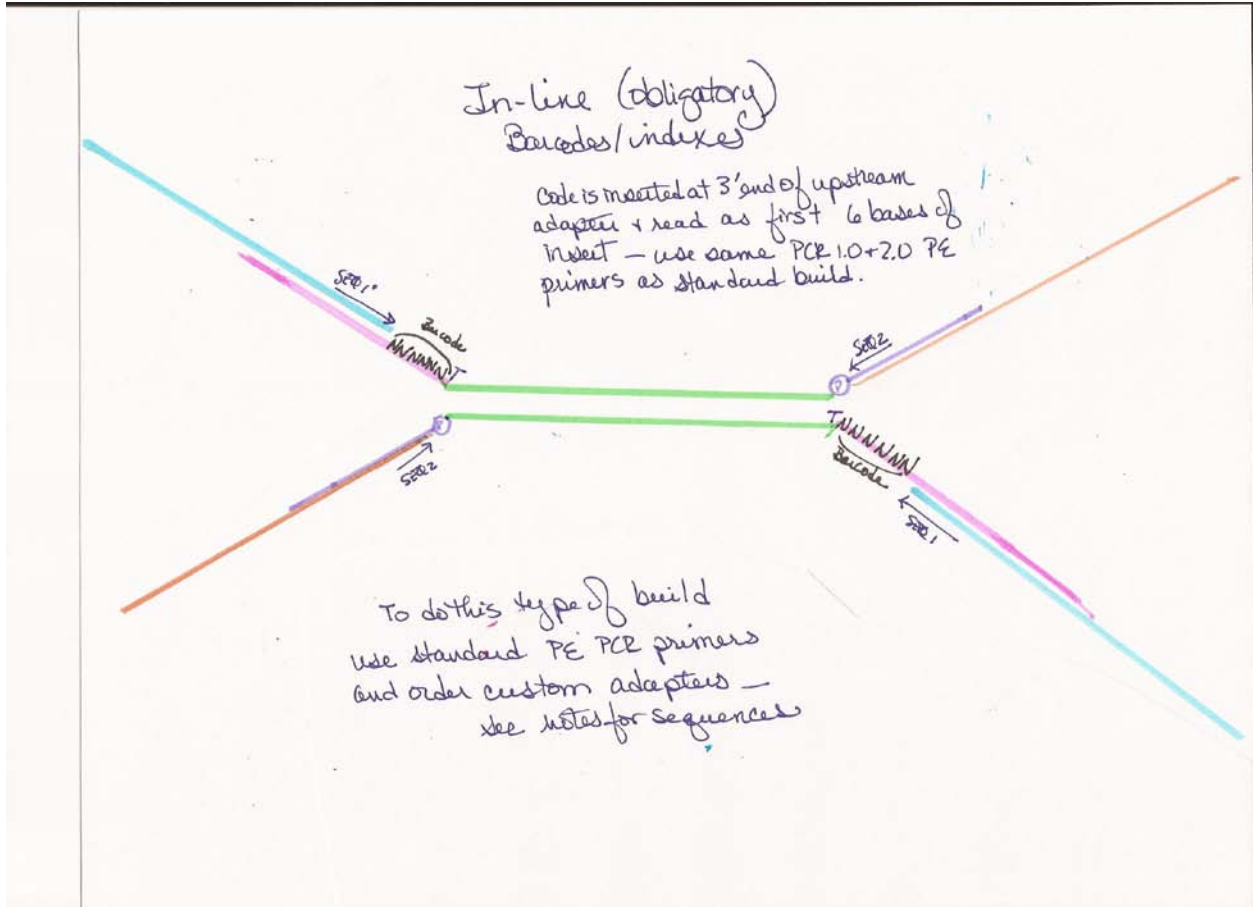 In-line (obligatory)
Barcodes/indexes
Code is inserted at 3' end of upstream
adapter + read as first 6 bases of
insert — use same PCR 1.0+2.0 PE
primers as standard build.
SEQ1
Barcode
NNNNNNT
SEQ2
P
P
SEQ2
TNNNNNN
Barcode
SEQ1
To do this type of build
use standard PE PCR primers
and order custom adapters —
see notes for sequences